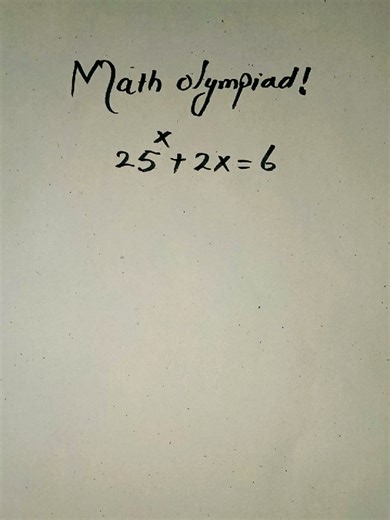 Math olympiad!
25ˣ + 2x = 6